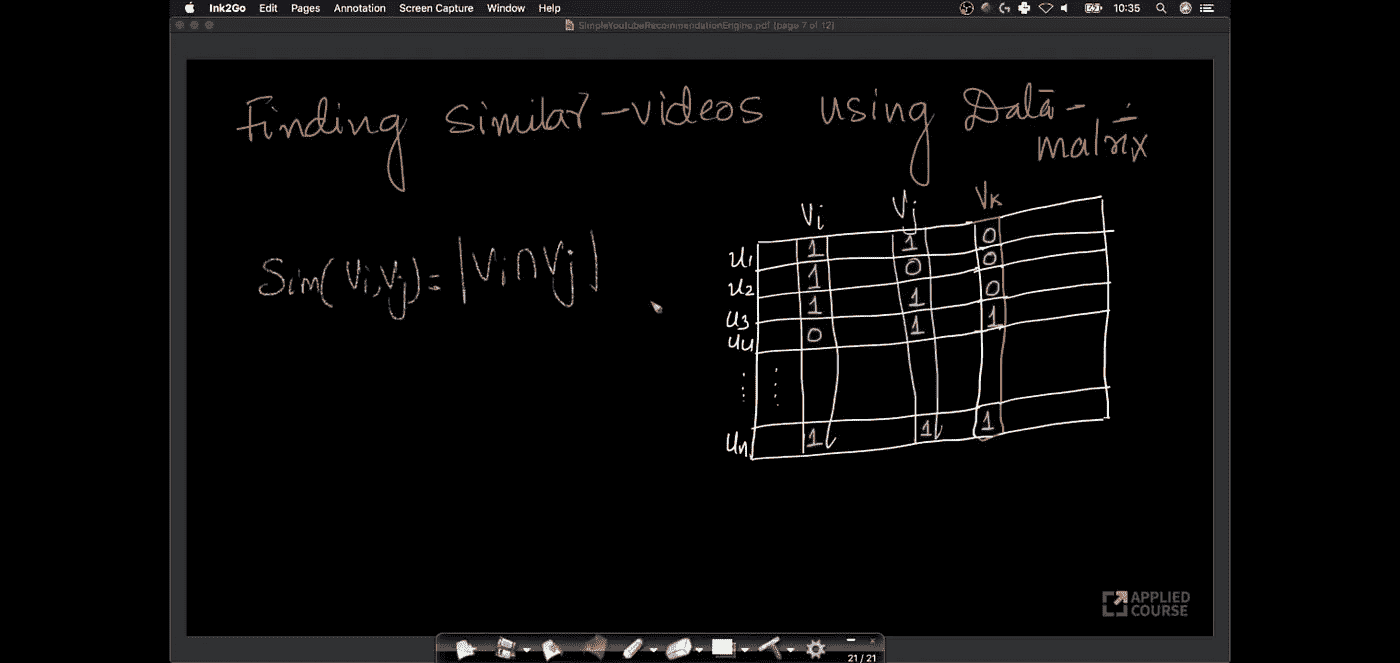 Ink2Go Edit Pages Annotation Screen Capture Window Help 10:35
SimpleYoutubeRecommendationEngine.pdf (page 7 of 12)
Finding Similar-videos using Data-
matrix
Vi Vj Vk
Sim(Vi,Vj) = |Vi∩Vj|
u1 1 1 0
u2 1 0 0
u3 1 1 0
u4 0 1 1
un 1 1 1
APPLIED
COURSE
21/21